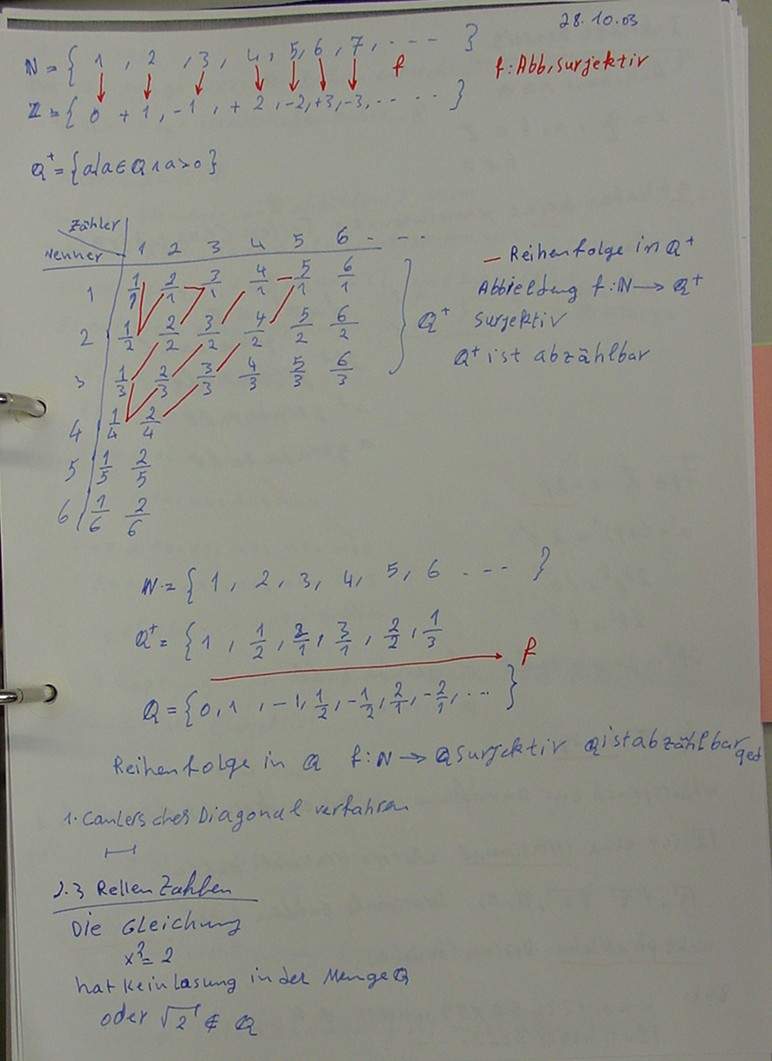 28.10.03
N = { 1 , 2 , 3 , 4 , 5 , 6 , 7 , . - - - }
f
f: Abb, surjektiv
Z = { 0 + 1 , -1 , + 2 , -2 , +3 , -3 , . . . . . }
Q⁺ = {a/a ∈ Q ∧ a > 0}
Zähler
Nenner 1 2 3 4 5 6 - - -
1 1/1 2/1 3/1 4/1 5/1 6/1
2 1/2 2/2 3/2 4/2 5/2 6/2
3 1/3 2/3 3/3 4/3 5/3 6/3
4 1/4 2/4
5 1/5 2/5
6 1/6 2/6
Q⁺
— Reihenfolge in Q⁺
Abbieldung f: N → Q⁺
surjektiv
Q⁺ ist abzählbar
N = { 1 , 2 , 3 , 4 , 5 , 6 - - - }
Q⁺ = { 1 , 1/2 , 2/1 , 3/1 , 2/2 , 1/3
f
Q = { 0 , 1 , -1 , 1/2 , -1/2 , 2/1 , -2/1 , . . . }
Reihenfolge in Q f: N → Q surjektiv Q ist abzählbar
qed
1. Canlersches Diagonal verfahren
2.3 Rellen Zahlen
Die Gleichung
x² = 2
hat kein Lasung in der Menge Q
oder √2 ∉ Q